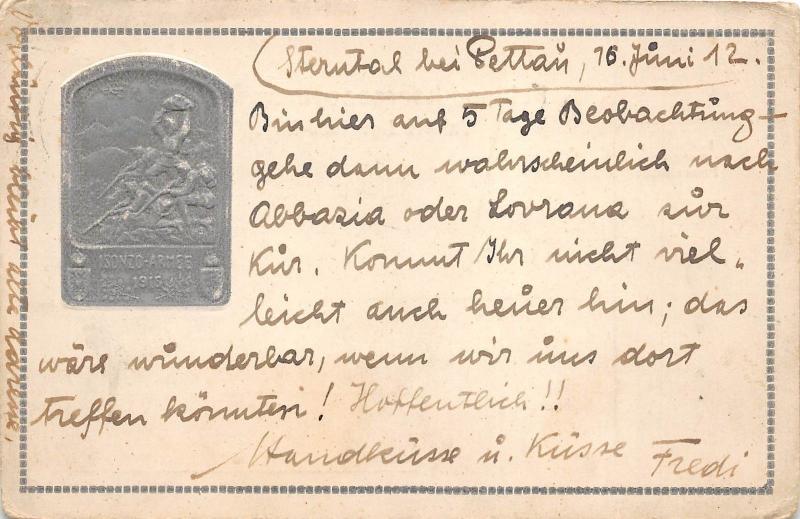 Sterntal bei Pettau, 16. Juni 12.
Bin hier auf 5 Tage Beobachtung –
gehe dann wahrscheinlich nach
Abbazia oder Lovrana zur
Kur. Kommt Ihr nicht viel„
leicht auch heuer hin; das
wäre wunderbar, wenn wir uns dort
treffen könnten! Hoffentlich!!
Handküsse u. Küsse Fredi
ISONZO-ARMEE
1915